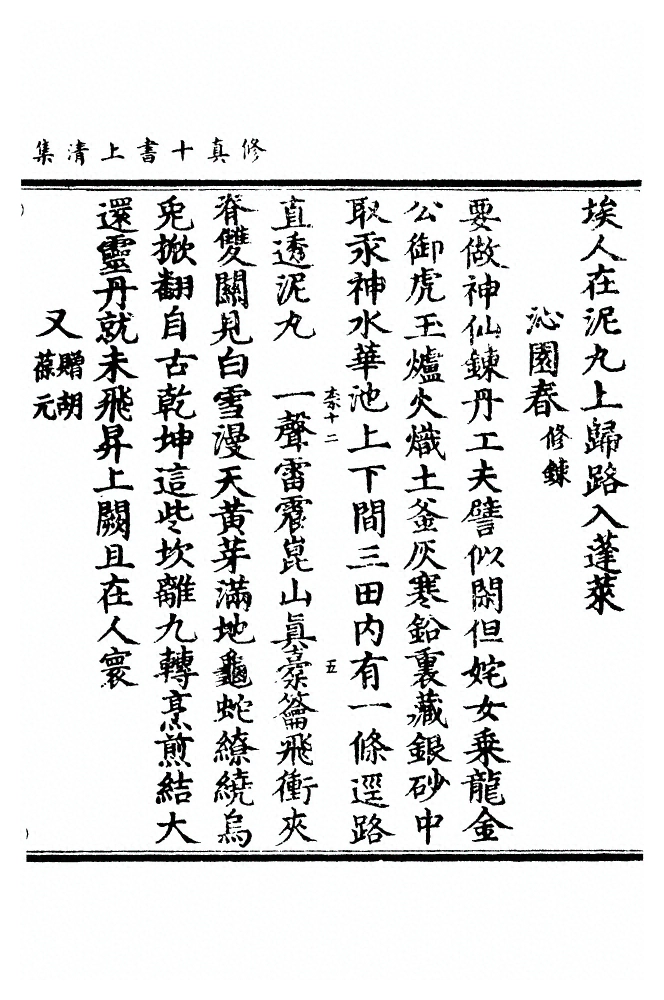 修真十書上清集
埃人在泥丸上歸路入蓬萊
沁園春 修鍊
要做神仙鍊丹工夫譬似閑但姹女乘龍金
公御虎玉爐火熾土釜灰寒鉛裏藏銀砂中
取汞神水華池上下間三田内有一條逕路
直透泥丸 一聲雷震崑山眞橐籥飛衝夾
柰十二 五
脊雙關見白雪漫天黃芽滿地龜蛇繚繞烏
兎掀翻自古乾坤這些坎離九轉烹煎結大
還靈丹就未飛昇上闕且在人寰
又 贈胡葆元